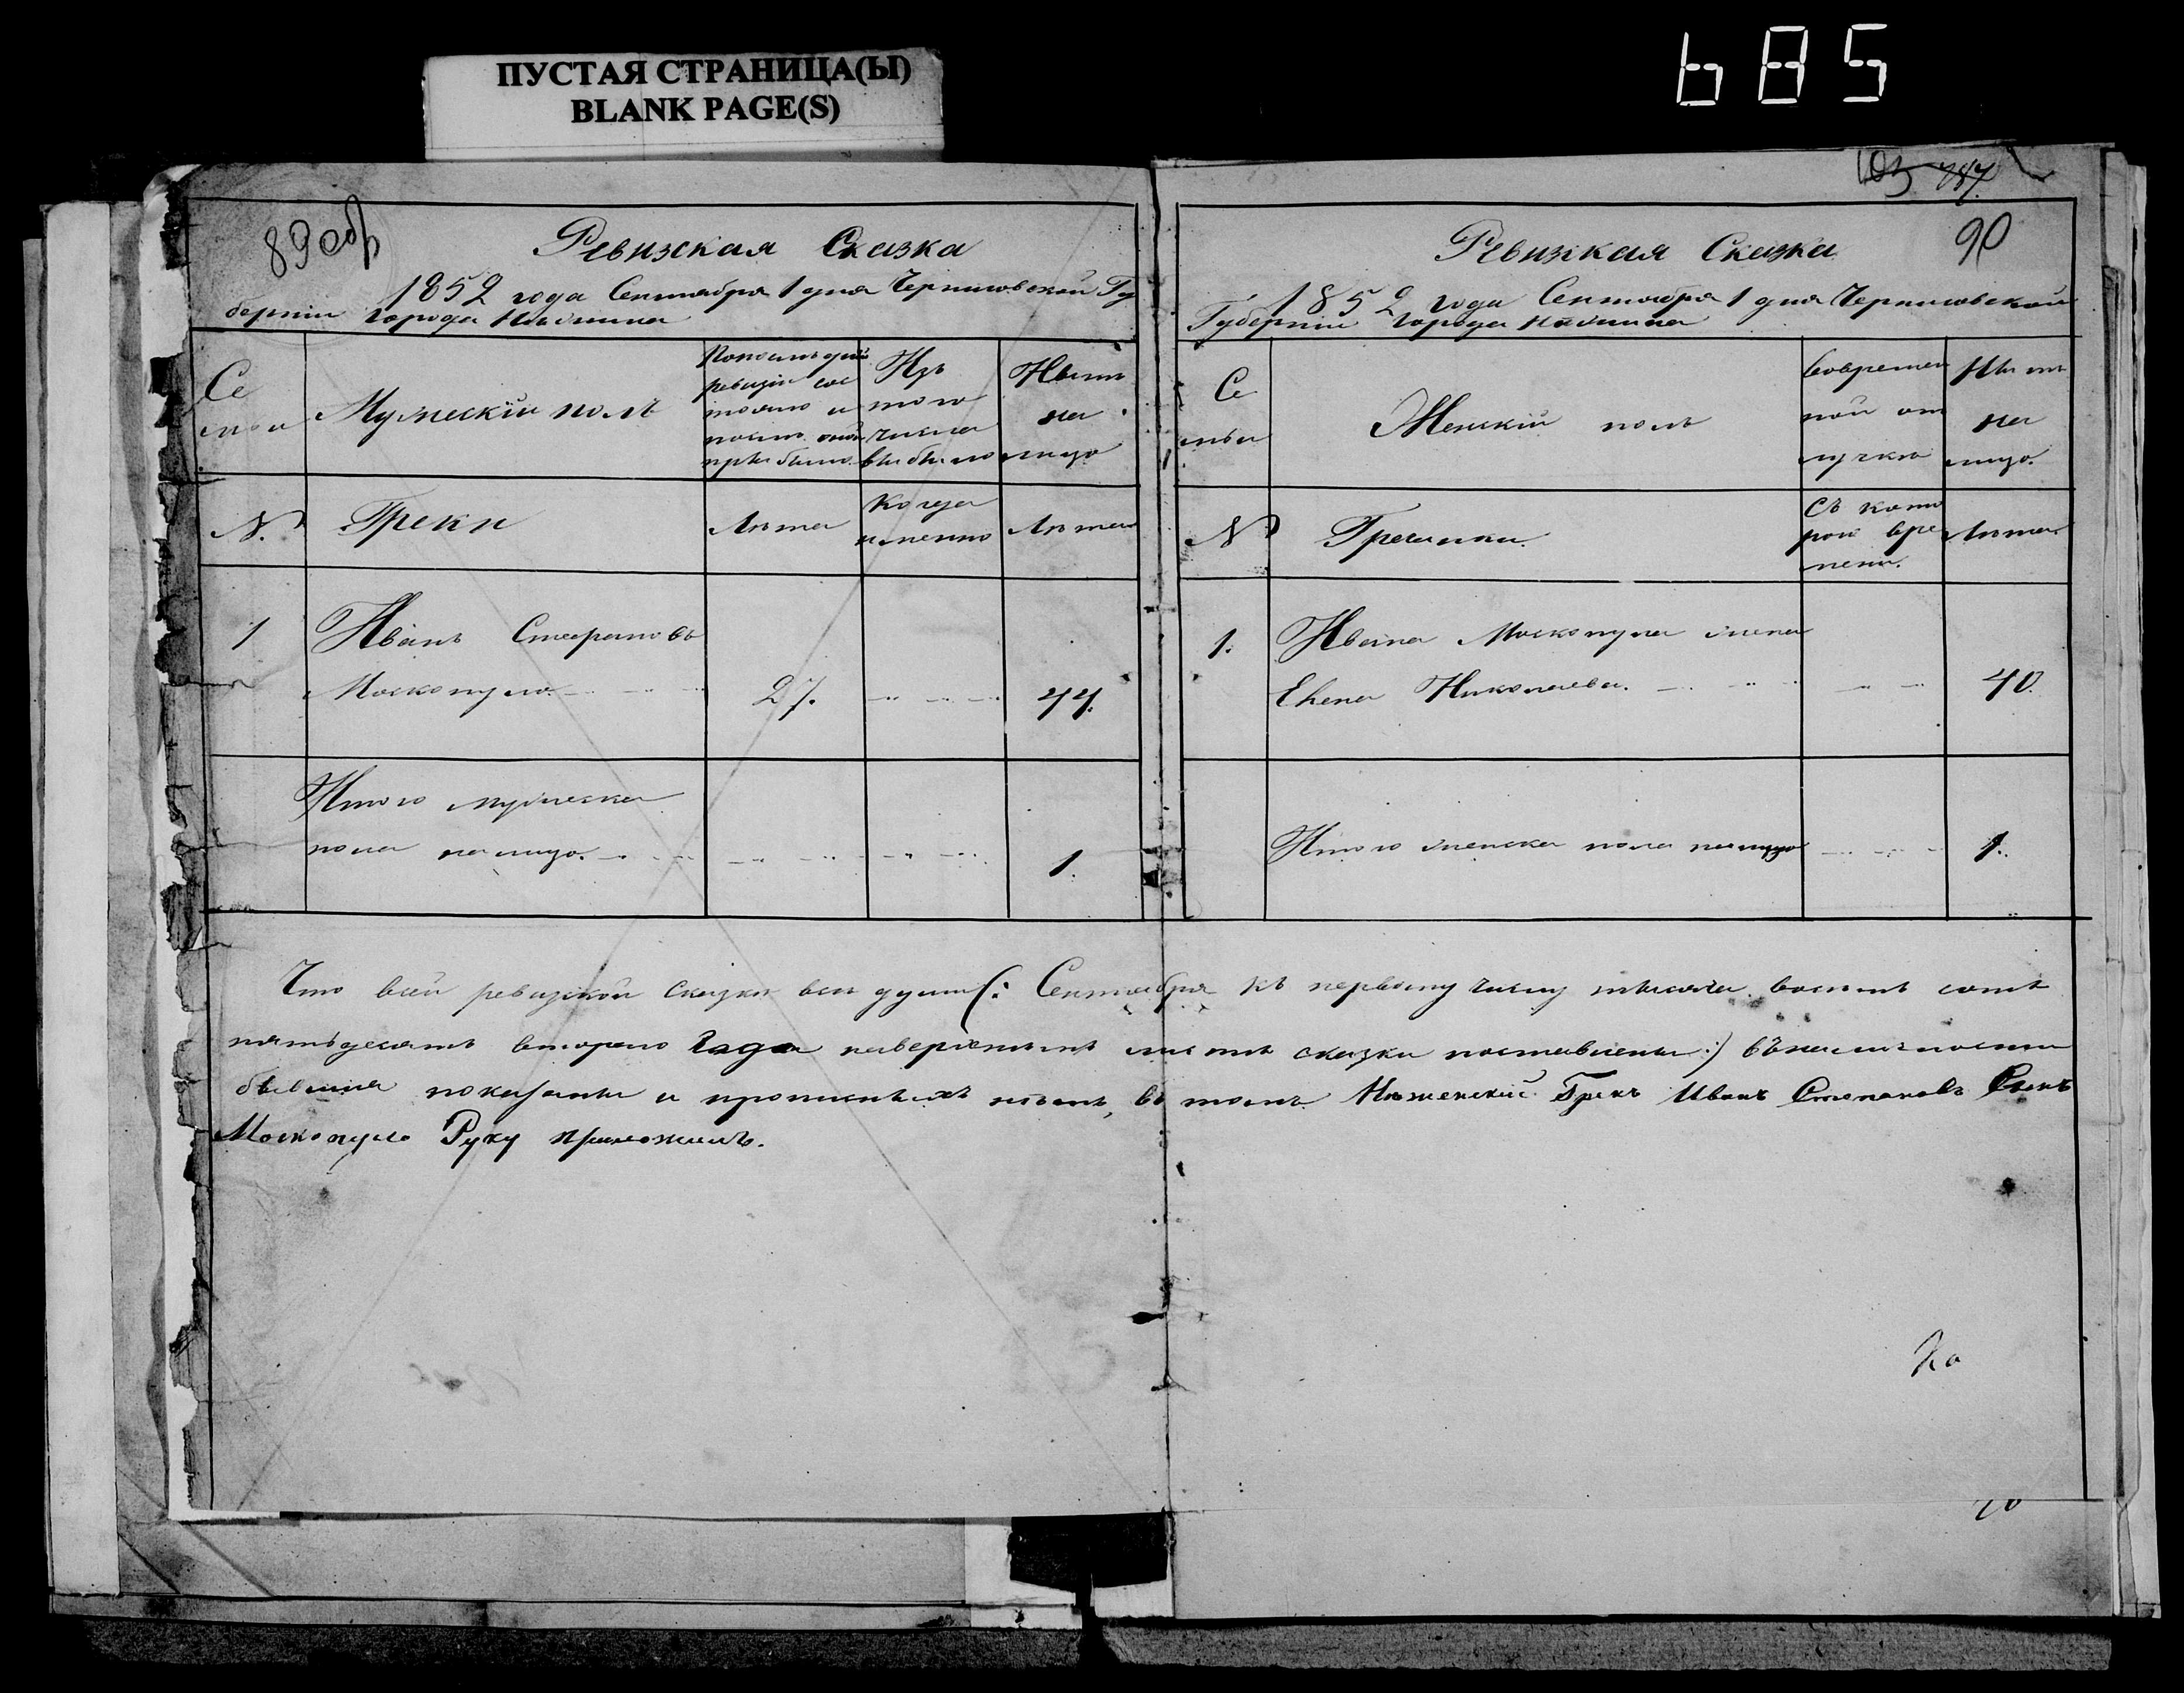 ПУСТАЯ СТРАНИЦА(Ы)
BLANK PAGE(S)
685
89 об
Ревизская Сказка
1852 года Сентября 1 дня Черниговской Гу
берніи города Нѣжина
Се
мьи
Мужескій полъ
По послѣдней
ревизіи сос
тояло и
послѣ оной
прибыло.
Изъ
того
числа
выбыло
Нынѣ
на
лицо
№.
Греки
Лѣта
Когда
именно
Лѣта
1
Иванъ Стефановъ
Москопуло
27.
44.
Итого мужеска
пола налицо.
1.
103 787
90
Ревизкая Сказка
1852 года Сентября 1 дня Черниговской
Губерніи города Нѣжина
Се
мьи
Женскій полъ
Вовремен
ной от
лучкѣ
Нынѣ
на
лицо.
№
Гречанки.
Съ кото
рой вре
мени.
Лѣта
1.
Ивана Москопула жена
Елена Николаева.
40.
Итого женска пола налицо
1.
Что в сей ревизской Сказкѣ всѣ души (: Сентября къ первому числу тысяча восемь сотъ
пятьдесятъ втораго года наверхъ сказки поставлены :) въ наличности
бывшія показаны и прописныхъ нѣтъ, въ томъ Нѣженскій Грекъ Иванъ Степановъ Сынъ
Москопуло Руку приложилъ.